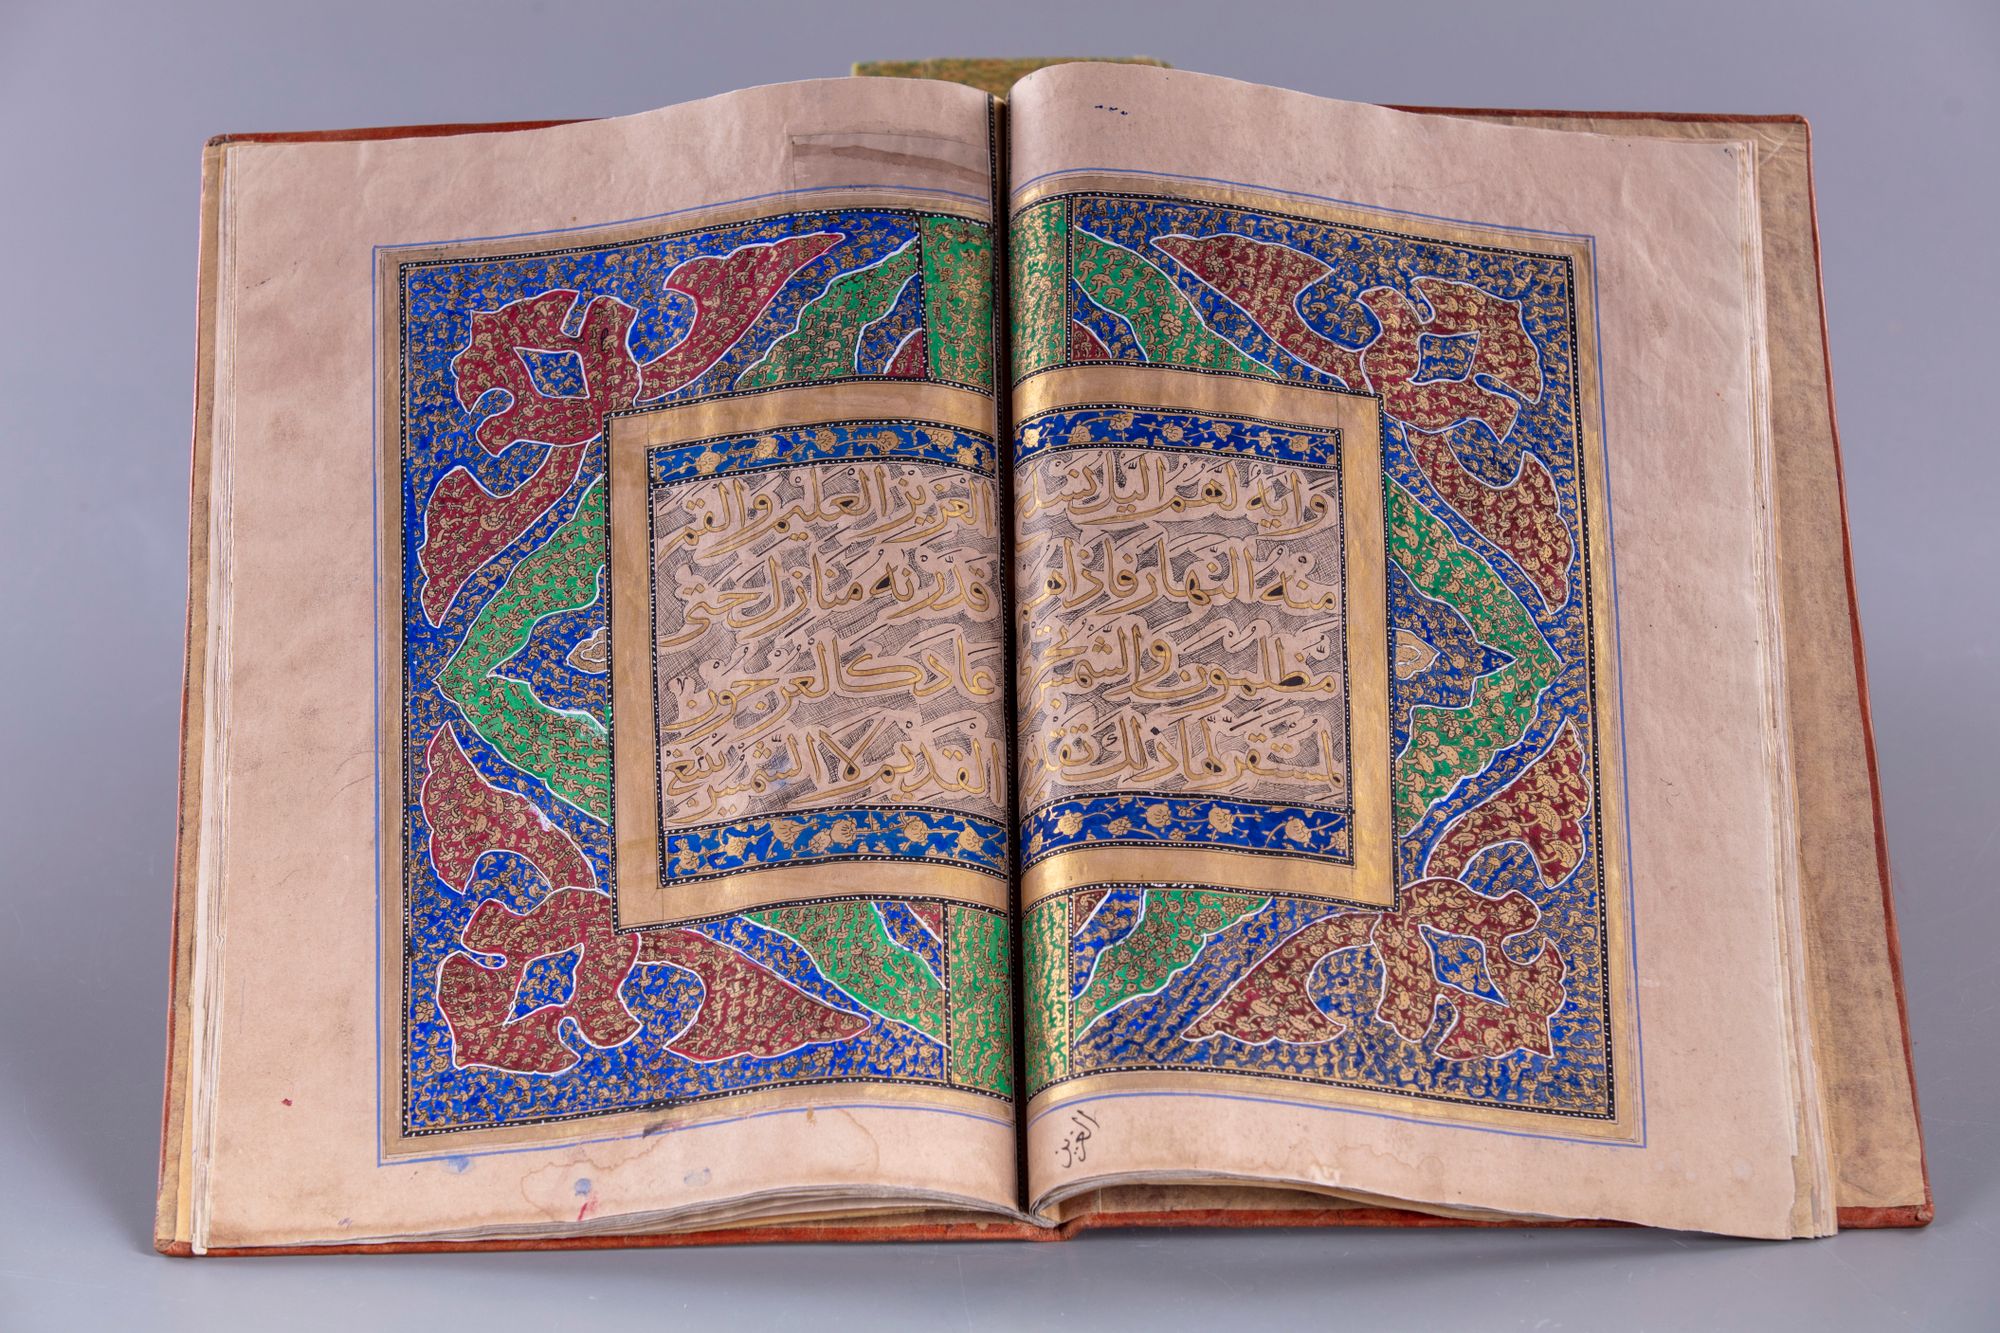 وَايه لهم اليل
منه النهار فاذا
مظلمون والشمس
لمستقر لها ذلك
العزيز
العزيز العليم والقمر
قدرنه منازل حتى
عاد كالعرجون
القديم لا الشمس ينبغي